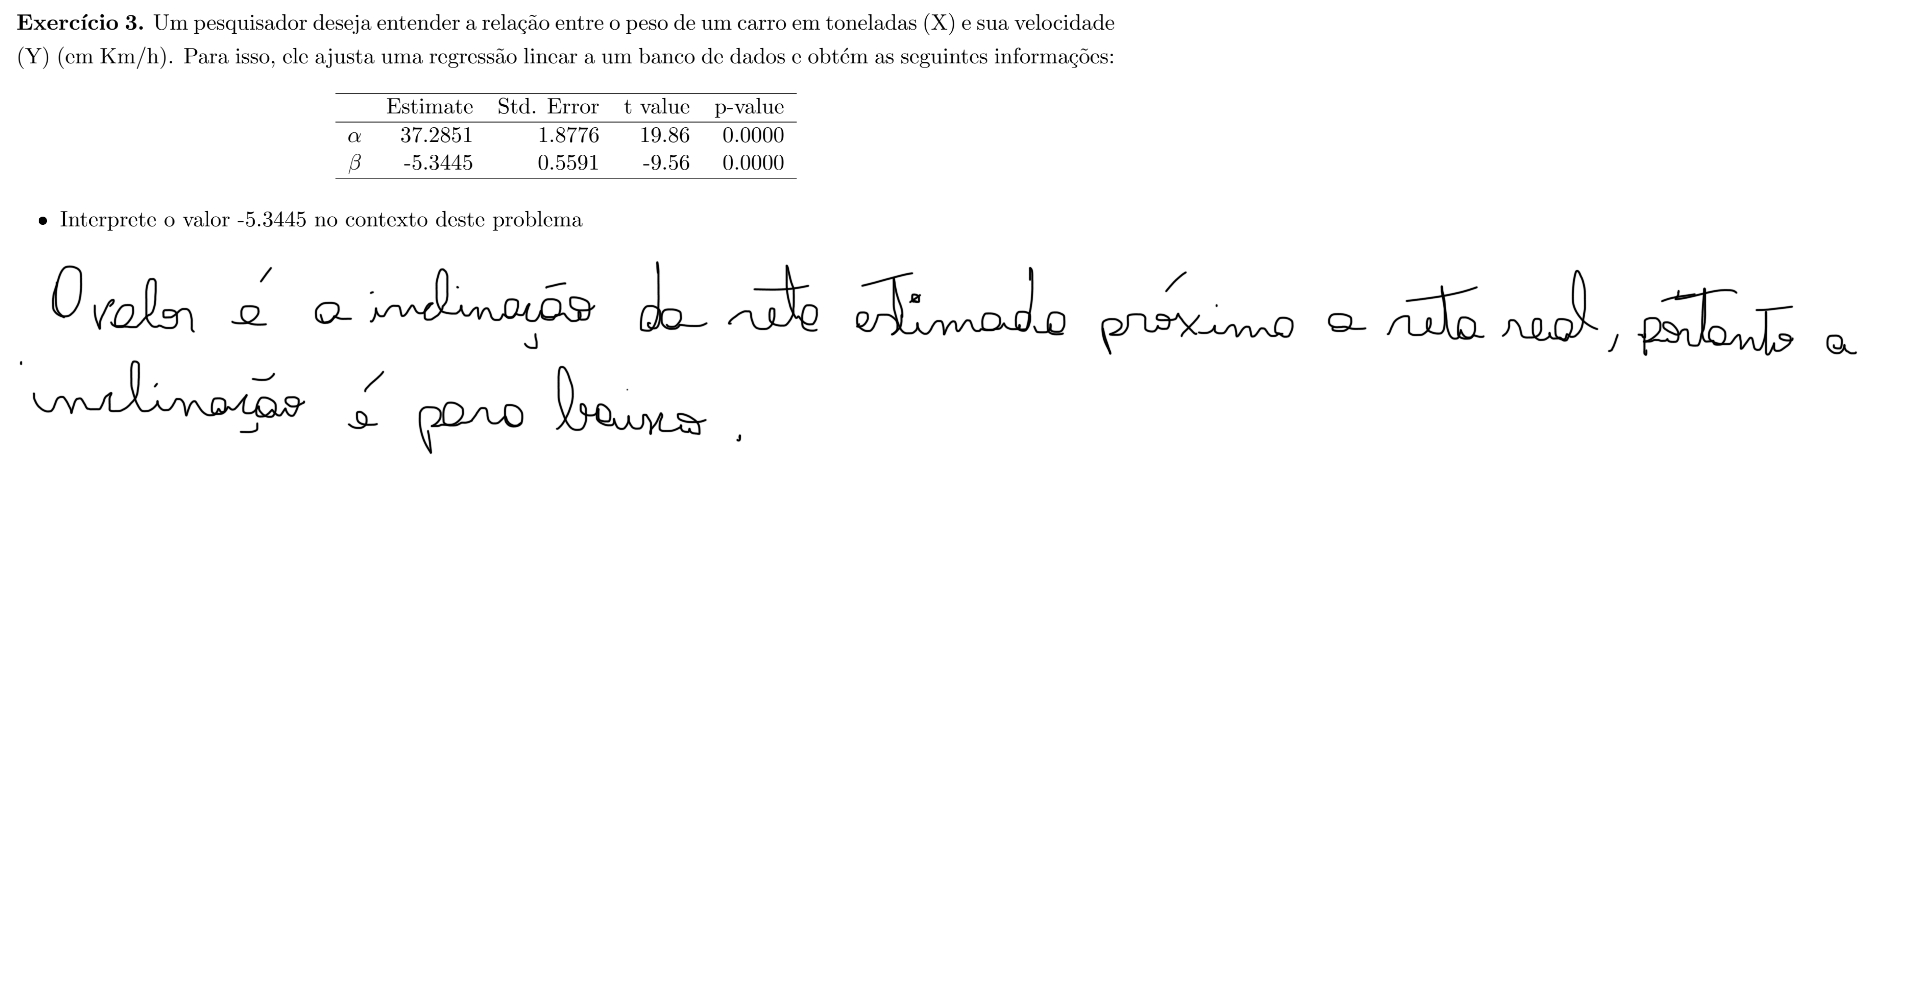 Exercício 3. Um pesquisador deseja entender a relação entre o peso de um carro em toneladas (X) e sua velocidade
(Y) (em Km/h). Para isso, ele ajusta uma regressão linear a um banco de dados e obtém as seguintes informações:
Estimate Std. Error t value p-value
α 37.2851 1.8776 19.86 0.0000
β -5.3445 0.5591 -9.56 0.0000
• Interprete o valor -5.3445 no contexto deste problema
O valor é a inclinação da reta estimada próximo a reta real, portanto a
inclinação é para baixo.